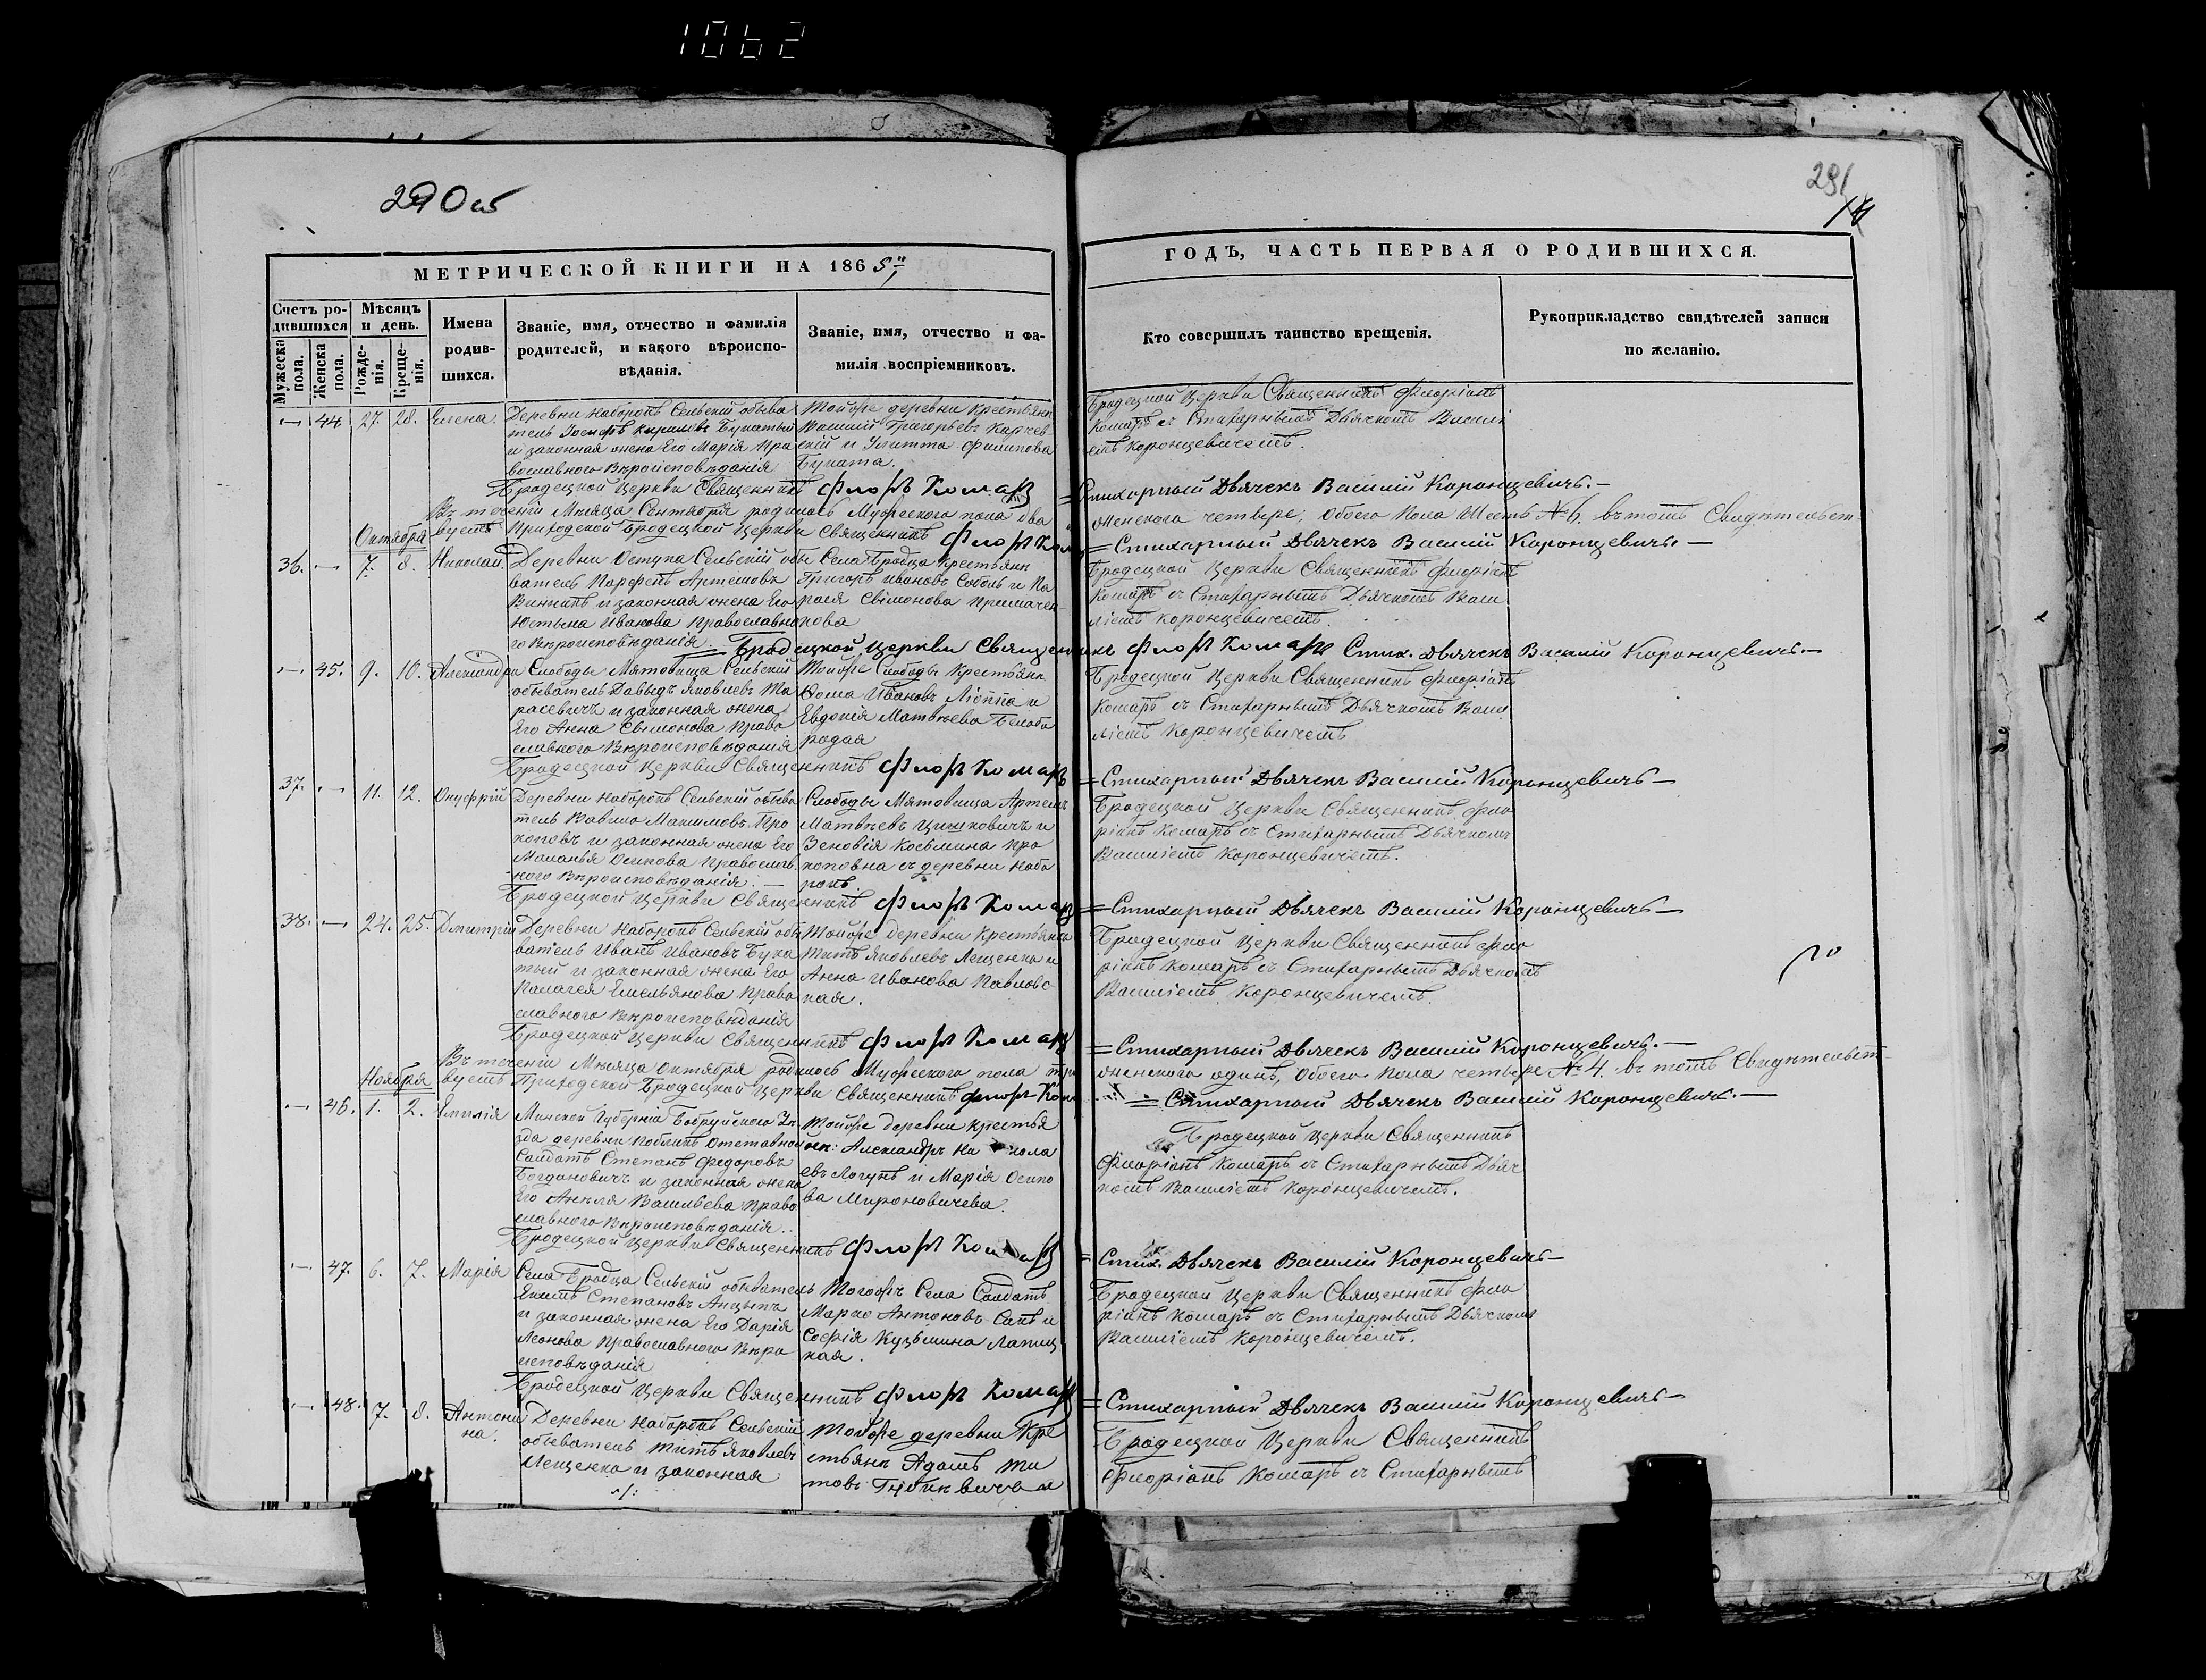 1062
290 об
291
МЕТРИЧЕСКОЙ КНИГИ НА 1865
ГОДЪ, ЧАСТЬ ПЕРВАЯ О РОДИВШИХСЯ.
Счетъ родившихся
Мѣсяцъ и день.
Имена родившихся.
Званіе, имя, отчество и фамилія родителей, и какого вѣроисповѣданія.
Званіе, имя, отчество и фамилія воспріемниковъ.
Кто совершилъ таинство крещенія.
Рукоприкладство свидѣтелей записи по желанію.
Мужеска пола.
Женска пола.
Рожденія.
Крещенія.
44 27. 28. Елена.
Деревни Наборокъ Сельскій обыва
тель Іосифъ Кириловъ Букатый
и законная жена Его Марія Пра
вославного Вѣроисповѣданія
Тойже деревни Крестьянъ
Василій Григорьевъ Карчев
скій и Улитта Филипова
Буката.
Бродецкой Церкви Священникъ Флоріанъ
Комаръ съ Стихарнымъ Дьячкомъ Васили
емъ Коронцевичемъ.
Бродецкой Церкви Священникъ Флоръ Комаръ
=Стихарный Дьячекъ Василій Коронцевичъ.—
Въ теченіи Мѣсяца Сентября родилось Мужеского пола два
женского четыре, обоего Пола Шесть № 6. въ томъ Свидѣтельст
вуемъ Приходской Бродецкой Церкви Священникъ Флоръ Ком
=Стихарный Дьячекъ Василій Коронцевичъ.—
Октября
36. — 7. 8. Николай.
Деревни Оступа Сельскій обы
ватель Парфенъ Артемовъ
Винникъ и законная жена Его
Юстына Иванова Православно
го Вѣроисповѣданія.
Села Бродца Крестьянъ
Григоръ Ивановъ Соболь и Па
рася Сымонова Примачен
кова
Бродецкой Церкви Священникъ Флоріанъ
Комаръ съ Стихарнымъ Дьячкомъ Васи
ліемъ Коронцевичемъ.
=Бродецкой Церкви Священникъ Флоръ Комаръ Стих. Дьячекъ Василій Коронцевичъ.—
— 45. 9. 10. Александра
Слободы Мятовища Сельскій
обыватель Давыдъ Яковлевъ Та
расевичъ и законная жена
Его Анна Сымонова Право
славного Вѣроисповѣданія
Тойже Слободы Крестьянъ
Фома Ивановъ Липпа и
Евдокія Матвѣева Белобо
родая
Бродецкой Церкви Священникъ Флоріанъ
Комаръ съ Стихарнымъ Дьячкомъ Васи
ліемъ Коронцевичемъ
Бродецкой Церкви Священникъ Флоръ Комаръ
=Стихарный Дьячекъ Василій Коронцевичъ—
37. — 11. 12. Онуфрій
Деревни Наборокъ Сельскій обыва
тель Вавило Макимовъ Про
коповъ и законная жена Его
Маланья Осипова Православ
ного Вѣроисповѣданія.—
Слободы Мятовища Артемъ
Матвѣевъ Цишковичъ и
Зеновія Косьмина Про
коповна съ деревни Набо
рокъ.
Бродецкой Церкви Священникъ Фло
ріанъ Комаръ съ Стихарнымъ Дьячкомъ
Василіемъ Коронцевичемъ.
Бродецкой Церкви Священникъ Флоръ Комаръ
=Стихарный Дьячекъ Василій Коронцевичъ—
38. — 24. 25. Дмитрій
Деревни Наборокъ Сельскій обы
ватель Иванъ Ивановъ Бука
тый и законная жена Его
Палагея Емельянова Право
славного Вѣроисповѣданія
Тойже деревни Крестьянъ
Титъ Яковлевъ Лещенко и
Анна Иванова Павловс
кая.
Бродецкой Церкви Священникъ Фло
ріанъ Комаръ съ Стихарнымъ Дьячкомъ
Василіемъ Коронцевичемъ.
Бродецкой Церкви Священникъ Флоръ Комаръ
=Стихарный Дьячекъ Василій Коронцевичъ.—
Въ теченіи Мѣсяца Октября родилось Мужеского пола три
женского одинъ, обоего пола четыре № 4. въ томъ Свидѣтельст
вуемъ Приходской Бродецкой Церкви Священникъ Флоръ Ком
=Стихарный Дьячекъ Василій Коронцевичъ.—
Ноября
— 46. 1. 2. Емилія
Минской Губерніи Бобруйского Уѣ
зда деревни Отставной
Солдатъ Степанъ Федоровъ
Богдановичъ и законная жена
Его Анеля Васильева Право
славного Вѣроисповѣданія.
Тойже деревни Крестья
нъ: Александръ Никола
евъ Логунъ и Марія Осипо
ва Мироновичева.
Бродецкой Церкви Священникъ
Флоріанъ Комаръ съ Стихарнымъ Дьяч
комъ Василіемъ Коронцевичемъ.
Бродецкой Церкви Священникъ Флоръ Комаръ
=Стих. Дьячекъ Василій Коронцевичъ—
— 47. 6. 7. Марія
Села Бродца Сельскій обыватель
Якимъ Степановъ Анцыпъ
и законная жена Его Дарія
Леонова Православного Вѣро
исповѣданія
Тогожъ Села Солдатъ
Марко Антоновъ Сапъ и
Софія Кузьмина Лапиц
кая.
Бродецкой Церкви Священникъ Фло
ріанъ Комаръ съ Стихарнымъ Дьячкомъ
Василіемъ Коронцевичемъ.
Бродецкой Церкви Священникъ Флоръ Комаръ
=Стихарный Дьячекъ Василій Коронцевичъ—
— 48. 7. 8. Антони
на.
Деревни Наборокъ Сельскій
обыватель Титъ Яковлевъ
Лещенко и законная
Тойже деревни Кре
стьянъ Адамъ Ти
товъ и
Бродецкой Церкви Священникъ
Флоріанъ Комаръ съ Стихарнымъ